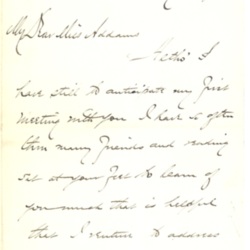 My Dear Miss Addams
Altho I
have still to anticipate my first
meeting with you I have so often
thru many friends and
at your feet to learn of
you much that is helpful
that I venture to address